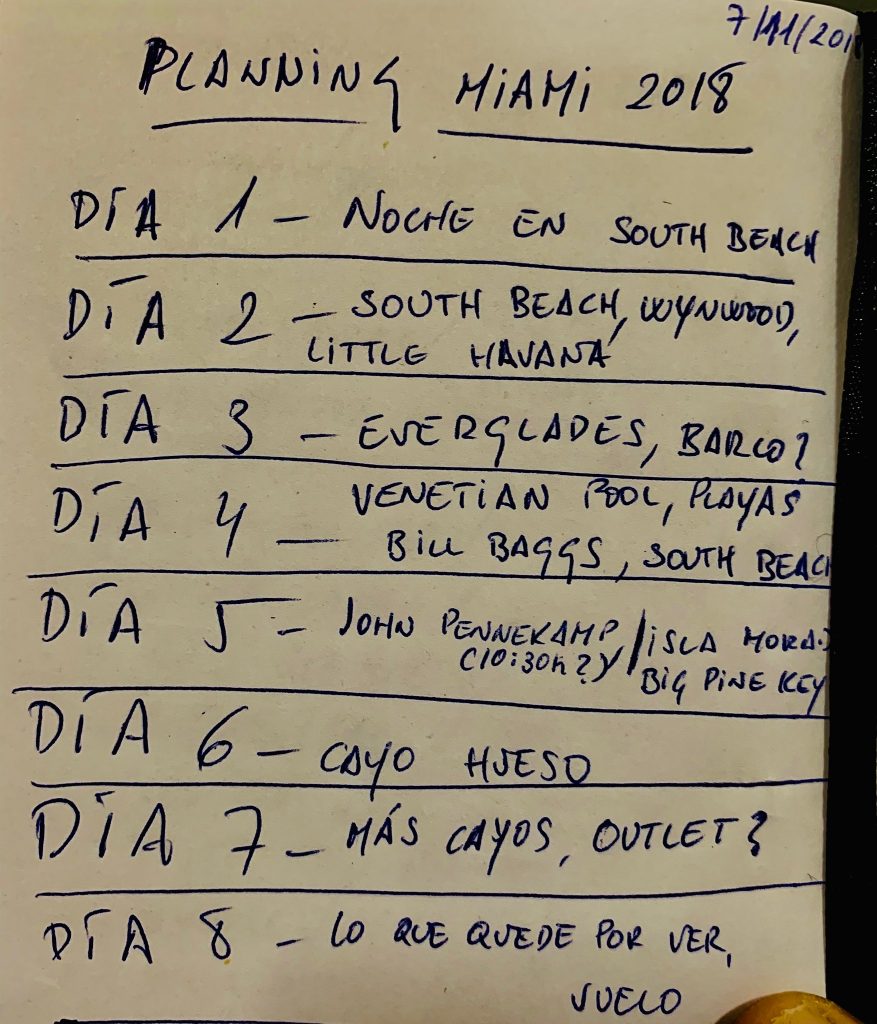 7/11/201
PLANNING MIAMI 2018
DÍA 1 - NOCHE EN SOUTH BEACH
DÍA 2 - SOUTH BEACH, WYNWOOD,
LITTLE HAVANA
DÍA 3 - EVERGLADES, BARCO?
DÍA 4 - VENETIAN POOL, PLAYAS
BILL BAGGS, SOUTH BEACH
DÍA 5 - JOHN PENNEKAMP / ISLA MORA.
(10:30h?) BIG PINE KEY
DÍA 6 - CAYO HUESO
DÍA 7 - MÁS CAYOS, OUTLET?
DÍA 8 - LO QUE QUEDE POR VER,
VUELO